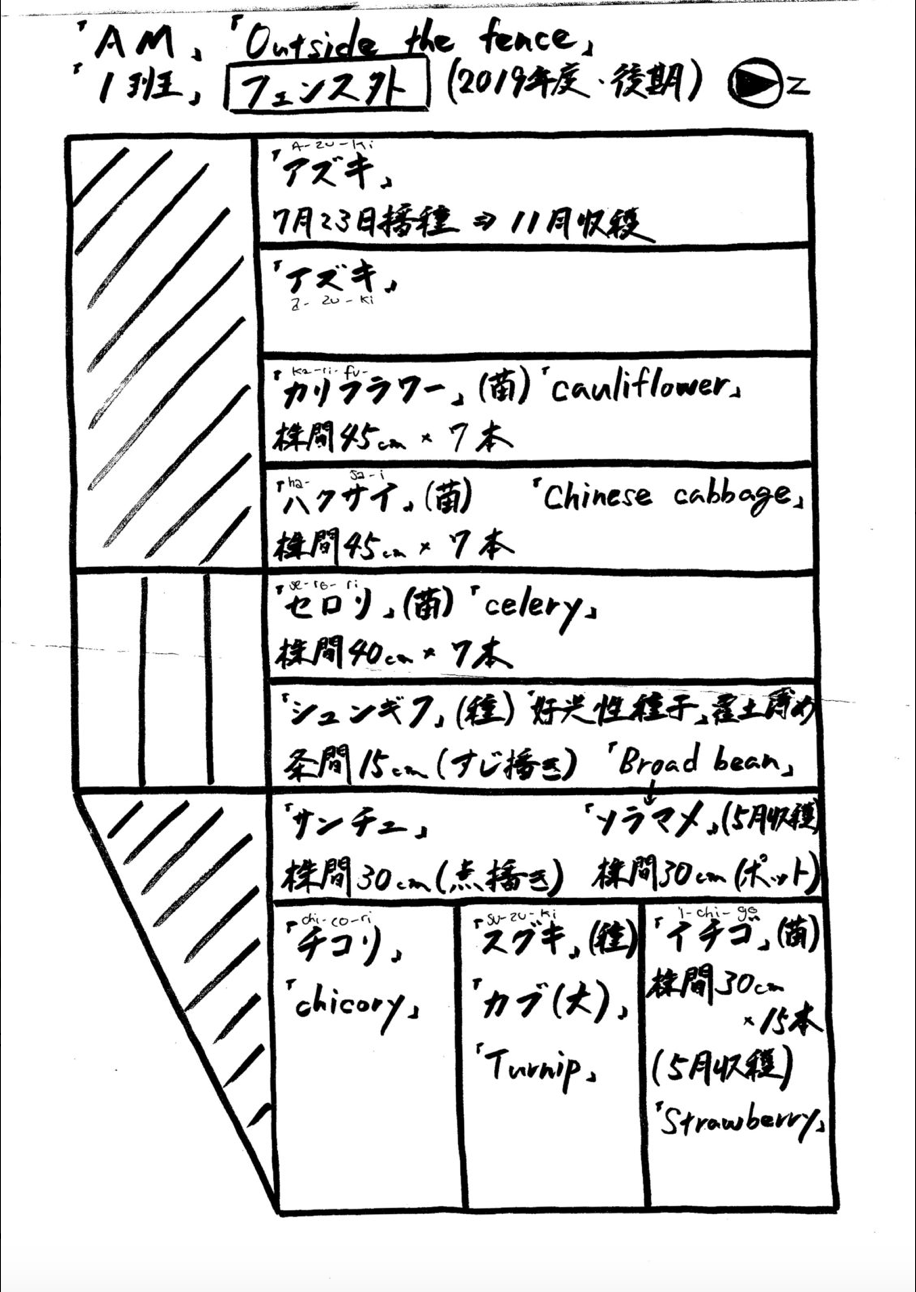 「AM」 「Outside the fence」
「1班」 フェンス外 (2019年度・後期) Z
A-zu-ki
「アズキ」
7月23日播種 ⇒ 11月収穫
「アズキ」
a-zu-ki
ka-ri-fu-
「カリフラワー」(苗)「cauliflower」
株間45cm × 7本
ha- sa-i
「ハクサイ」(苗) 「Chinese cabbage」
株間45cm × 7本
se-ro-ri
「セロリ」(苗)「celery」
株間40cm × 7本
「シュンギク」(種)「好光性種子」覆土薄め
条間15cm(すじ播き) 「Broad bean」
「サンチュ」 「ソラマメ」(5月収穫)
株間30cm(点播き) 株間30cm(ポット)
chi-co-ri
「チコリ」
「chicory」
su-zu-ki
「スグキ」(種)
「カブ(大)」
「Turnip」
i-chi-go
「イチゴ」(苗)
株間30cm
×15本
(5月収穫)
「Strawberry」